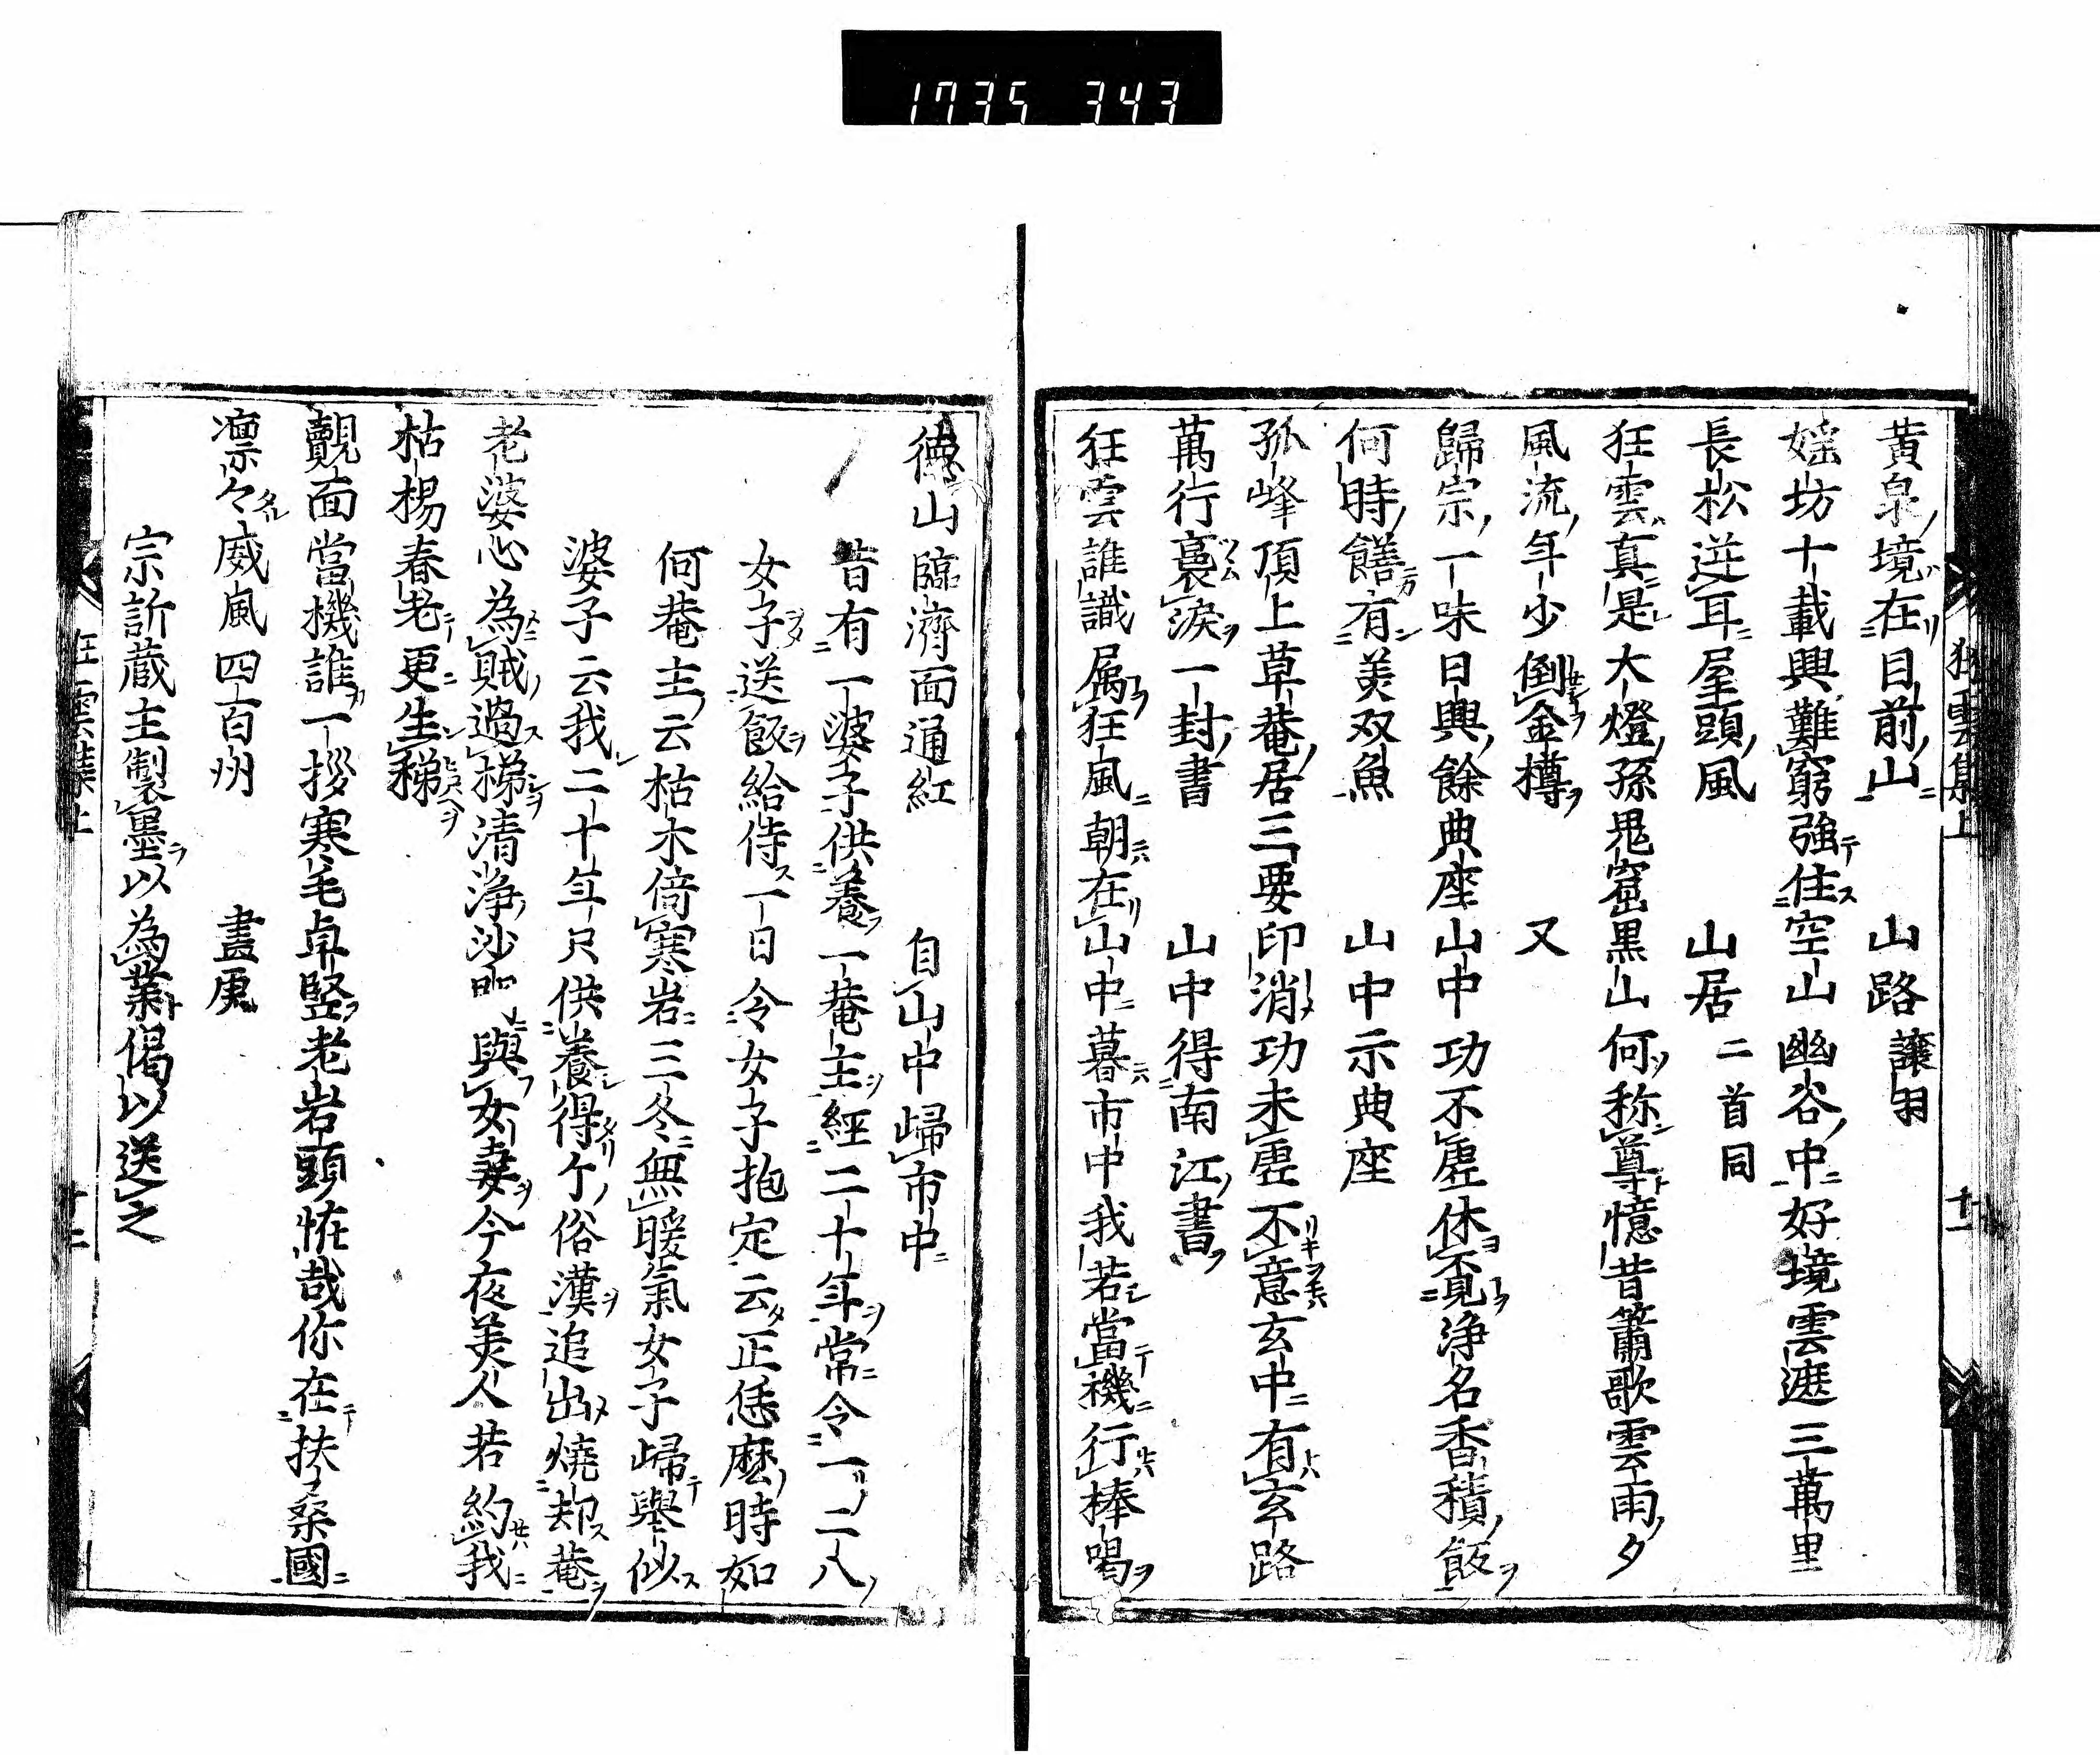 1735 343
狂雲集上
十一
黄泉境在目前山　山路譲羽
婬坊十載興難窮強住空山幽谷中好境雲遮三萬里
長松逆耳屋頭風　山居二首同
狂雲真是大燈孫鬼窟黒山何称尊憶昔簫歌雲雨夕
風流年少倒金樽　又
歸宗一味日興餘典座山中功不虚休覓浄名香積飯
何時饍有美双魚　山中示典座
孤峰頂上草菴居三要印消功未虚不意玄中有玄路
萬行裹涙一封書　山中得南江書
狂雲誰識属狂風朝在山中暮市中我若當機行棒喝
徳山臨濟面通紅　自山中歸市中
昔有一婆子供養一菴主經二十年常令一二八
女子送飯給侍一日令女子抱定云正恁麽時如
何菴主云枯木倚寒岩三冬無暖氣女子歸舉似
婆子云我二十年只供養得个俗漢追出燒却菴
老婆心為賊過梯清浄沙門與女妻今夜美人若約我
枯楊春老更生稊
覿面當機誰一拶寒毛卓竪老岩頭恠哉你在扶桑國
凛々威風四百州　畫虎
宗訢蔵主製墨以為業偈以送之
狂雲集上
十二